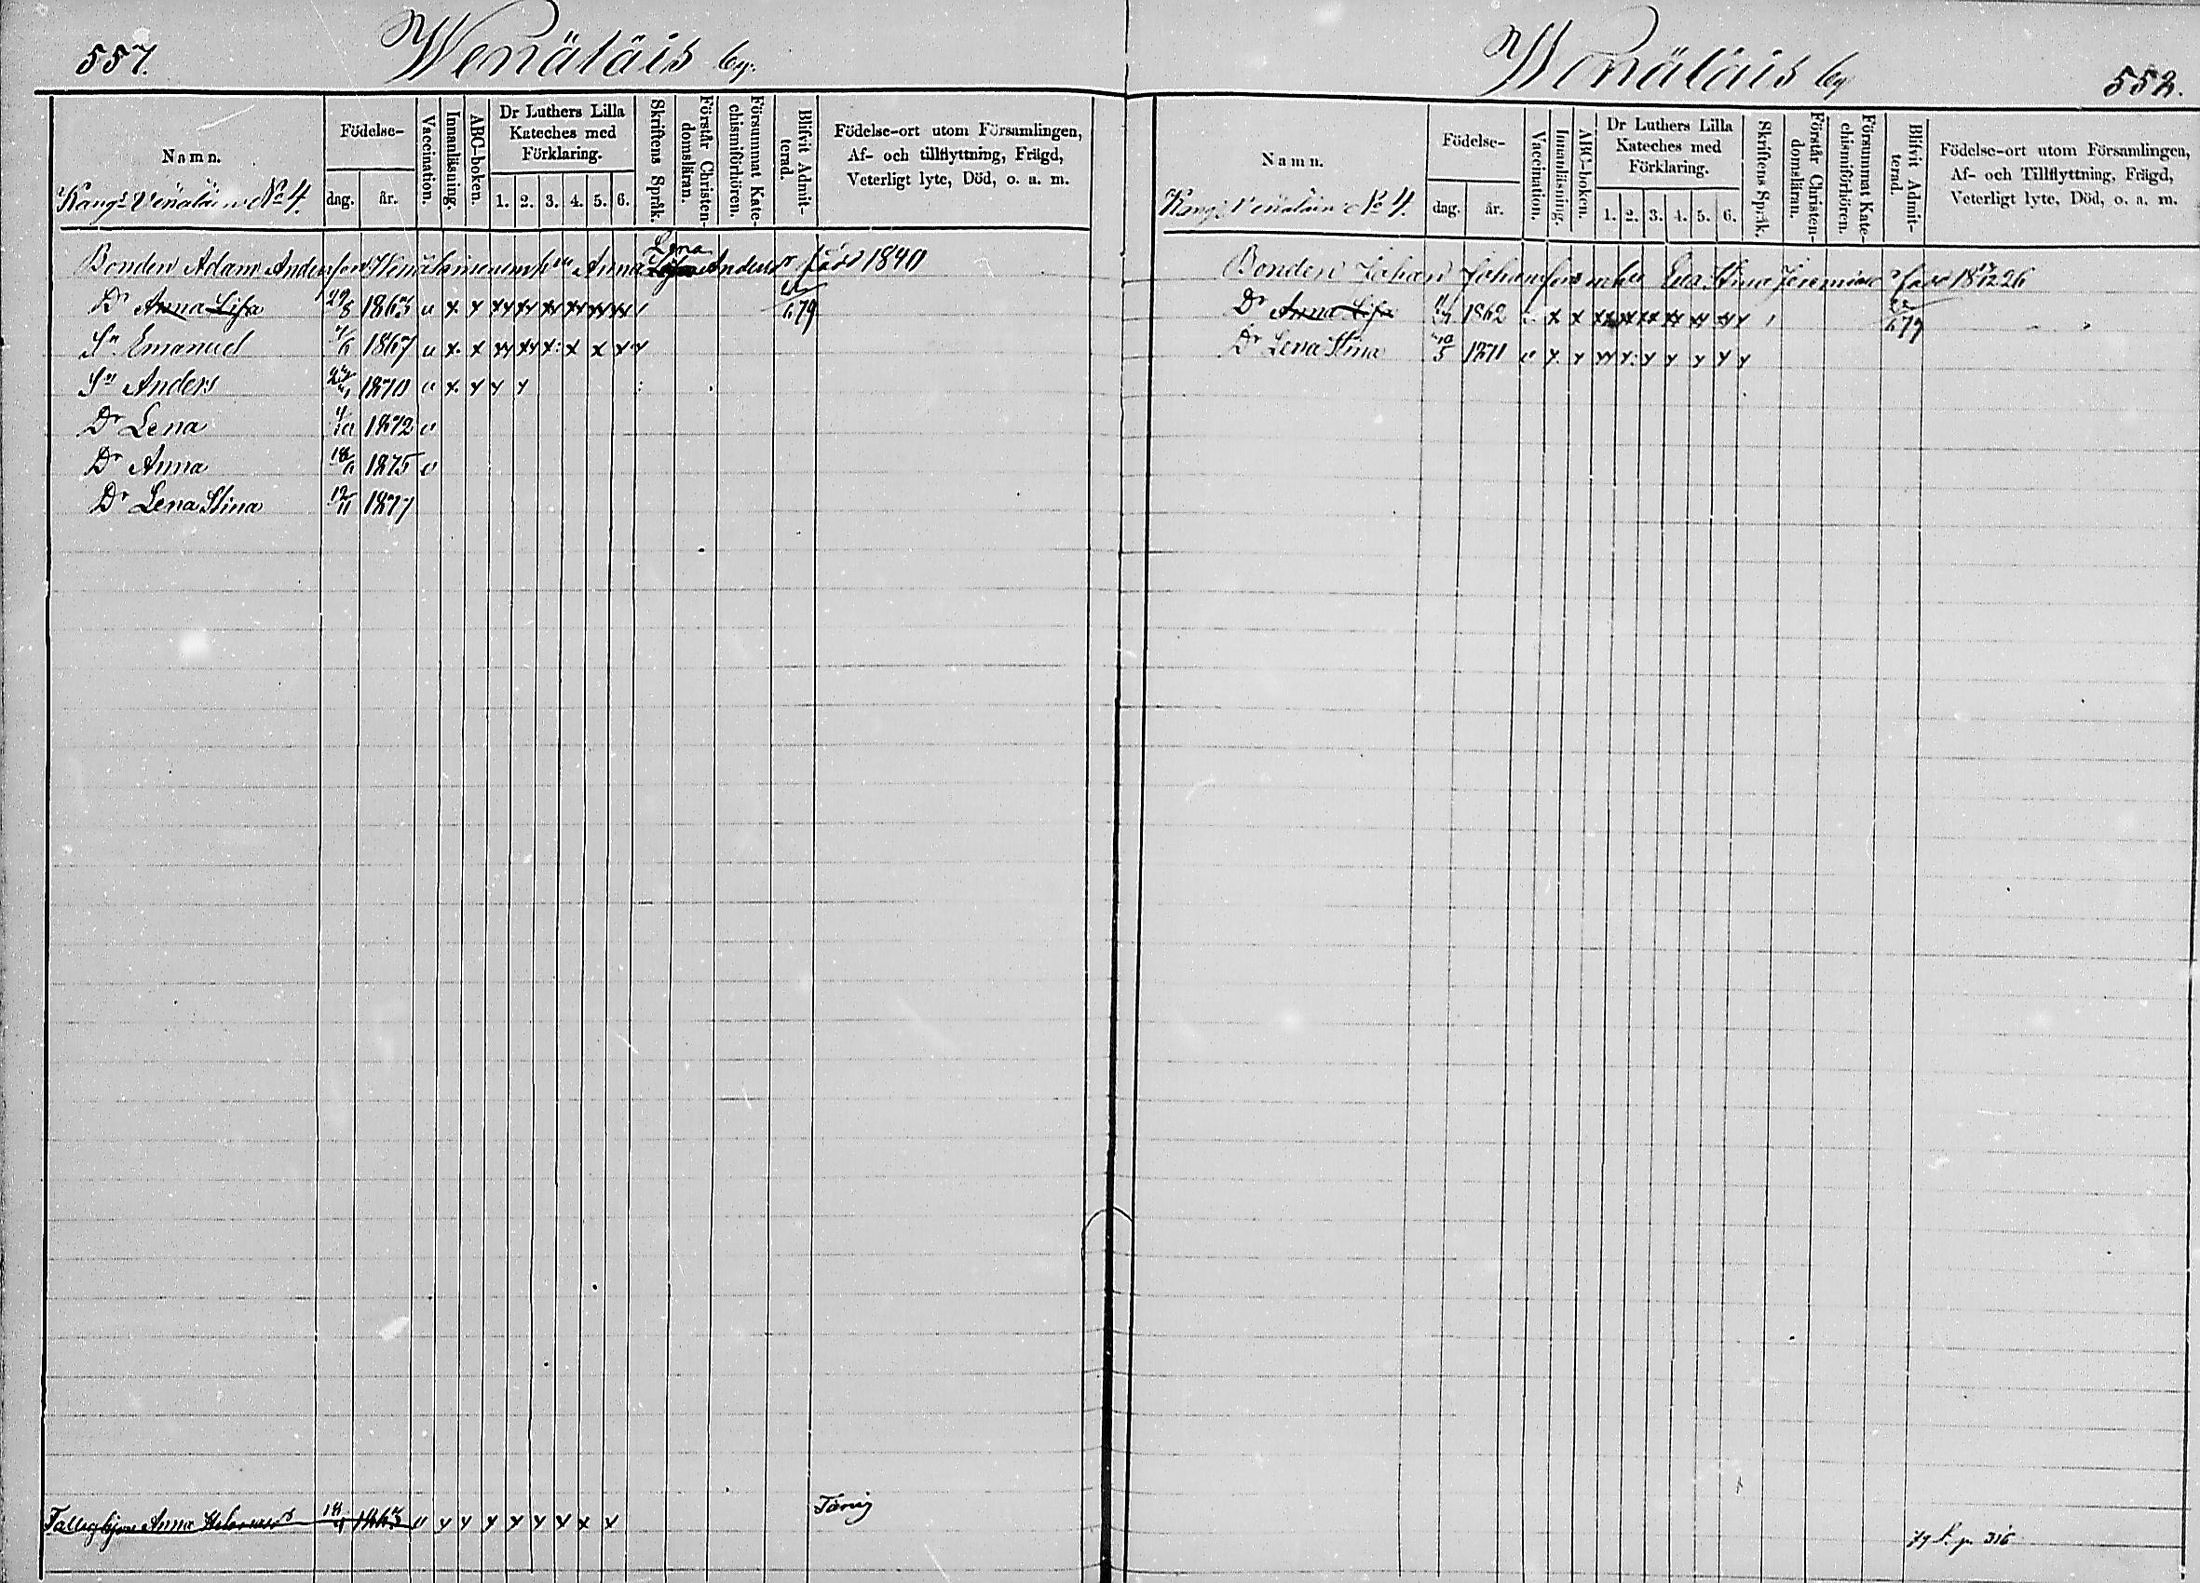 557.
Wenäläis by.
Namn.
Födelse-
dag.
år.
Vaccination.
Innanläsning.
ABC-boken.
Dr Luthers Lilla
Kateches med
Förklaring.
1. 2. 3. 4. 5. 6.
Skriftens Språk.
Förstår Christen-
domsläran.
Försummat Kate-
chismiförhören.
Blifvit Admit-
terad.
Födelse-ort utom Församlingen,
Af- och tillflyttning, Frägd,
Veterligt lyte, Död, o. a. m.
No 4.
Lena
Bonden Adam Andersson Anna född 1840
Dr Anna Lisa 29/8 1863 v x x xx xx xx xx xx xx 79
Sn Emanuel 1867 v x x xx xx x x x x x
Sn Anders 1870 v x x x x
Dr Lena 1872 v
Dr Anna 1875 v
Dr Lena Stina 12/11 1877
Anna v x x x x x x x x
Wenäläis by
552.
Namn.
Födelse-
dag.
år.
Vaccination.
Innanläsning.
ABC-boken.
Dr Luthers Lilla
Kateches med
Förklaring.
1. 2. 3. 4. 5. 6.
Skriftens Språk.
Förstår Christen-
domsläran.
Försummat Kate-
chismiförhören.
Blifvit Admit-
terad.
Födelse-ort utom Församlingen,
Af- och Tillflyttning, Frägd,
Veterligt lyte, Död, o. a. m.
No 4.
Bonden Johan Johansson Eva Stina
Dr Anna Lisa 1862 v x x xx xx xx xx xx xx
Dr Lena Stina 1871 v x x xx x x x x x x
p. 316